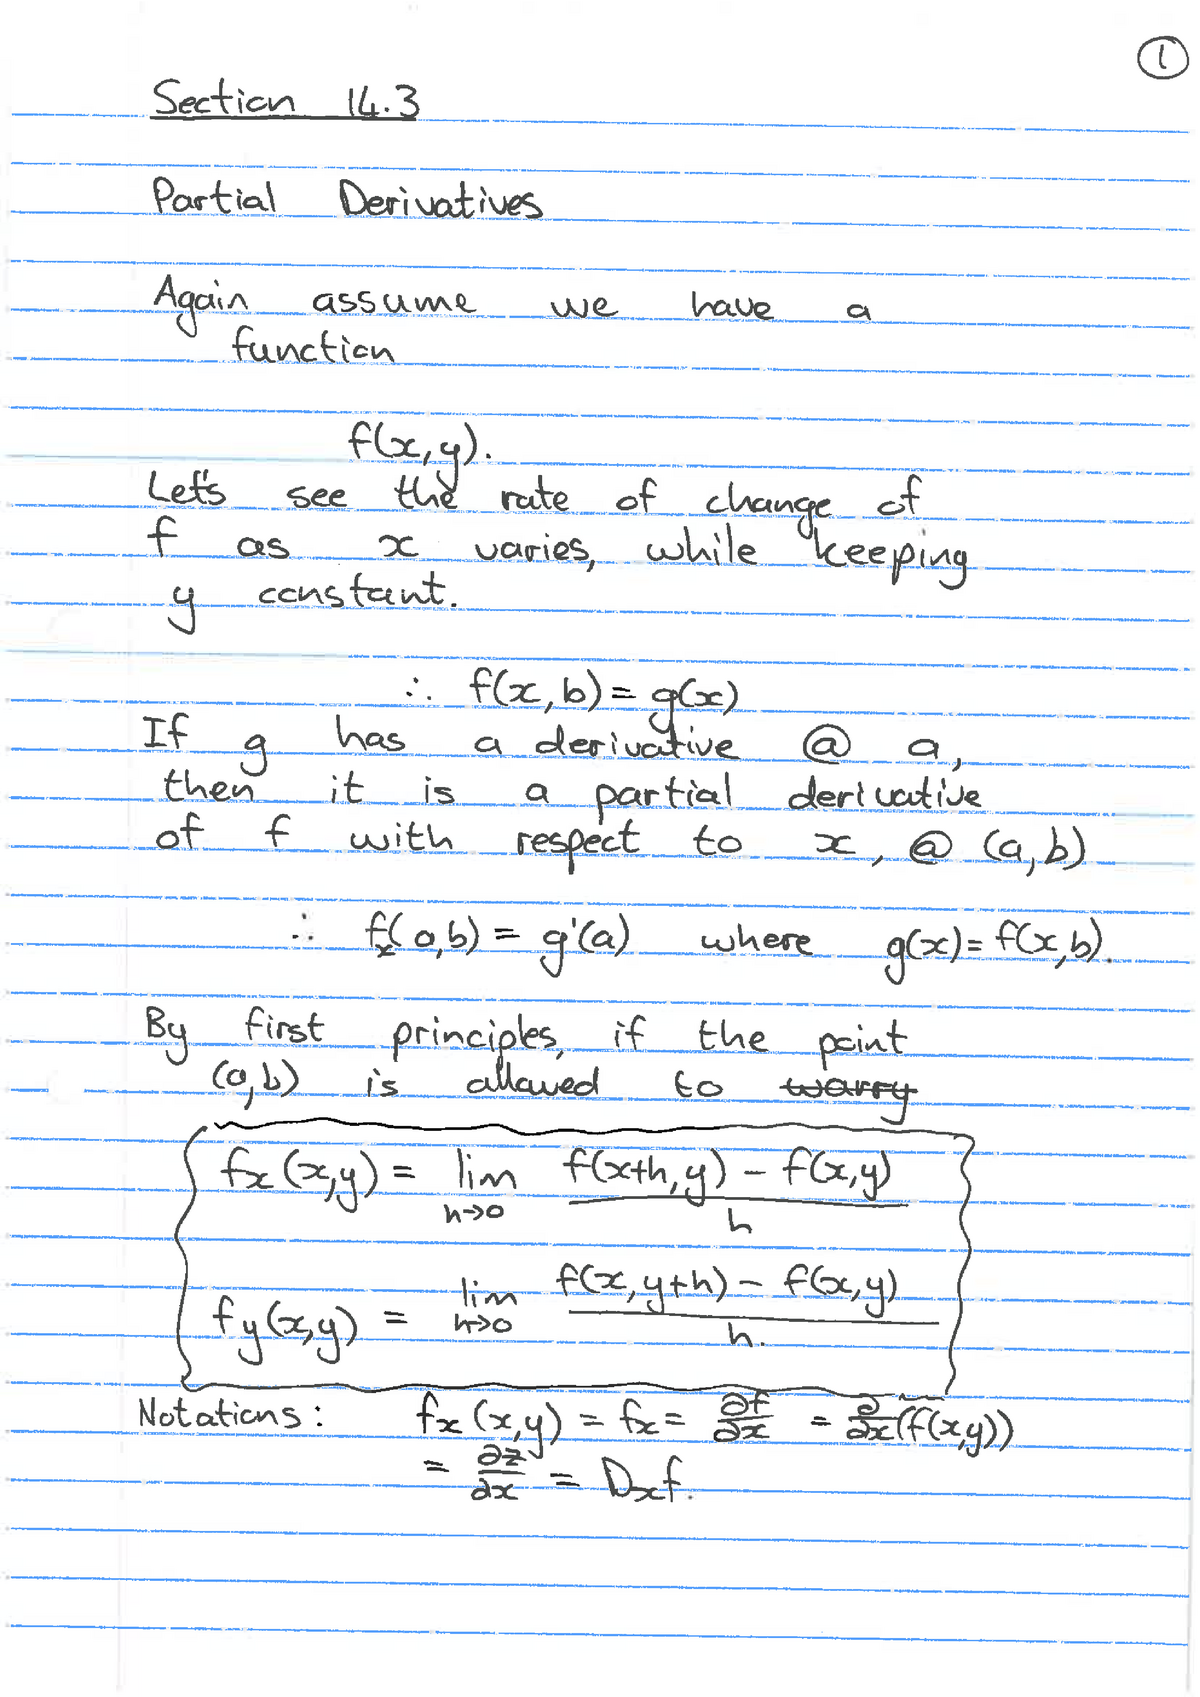 1
Section 14.3
Partial Derivatives
Again assume we have a
function
f(x,y).
Let's see the rate of change of
f as x varies, while keeping
y constant.
∴ f(x,b) = g(x)
If g has a derivative @ a,
then it is a partial derivative
of f with respect to x, @ (a,b)
∴ fₓ(a,b) = g'(a) where g(x) = f(x,b).
By first principles, if the point
(a,b) is allowed to ~~warry~~
fₓ(x,y) = lim f(x+h,y) − f(x,y)
h→0 h
lim f(x,y+h) − f(x,y)
fy(x,y) = h→0 h.
Notations: fₓ(x,y) = fₓ = ∂f/∂x = ∂/∂x(f(x,y))
= ∂z/∂x = Dₓf.